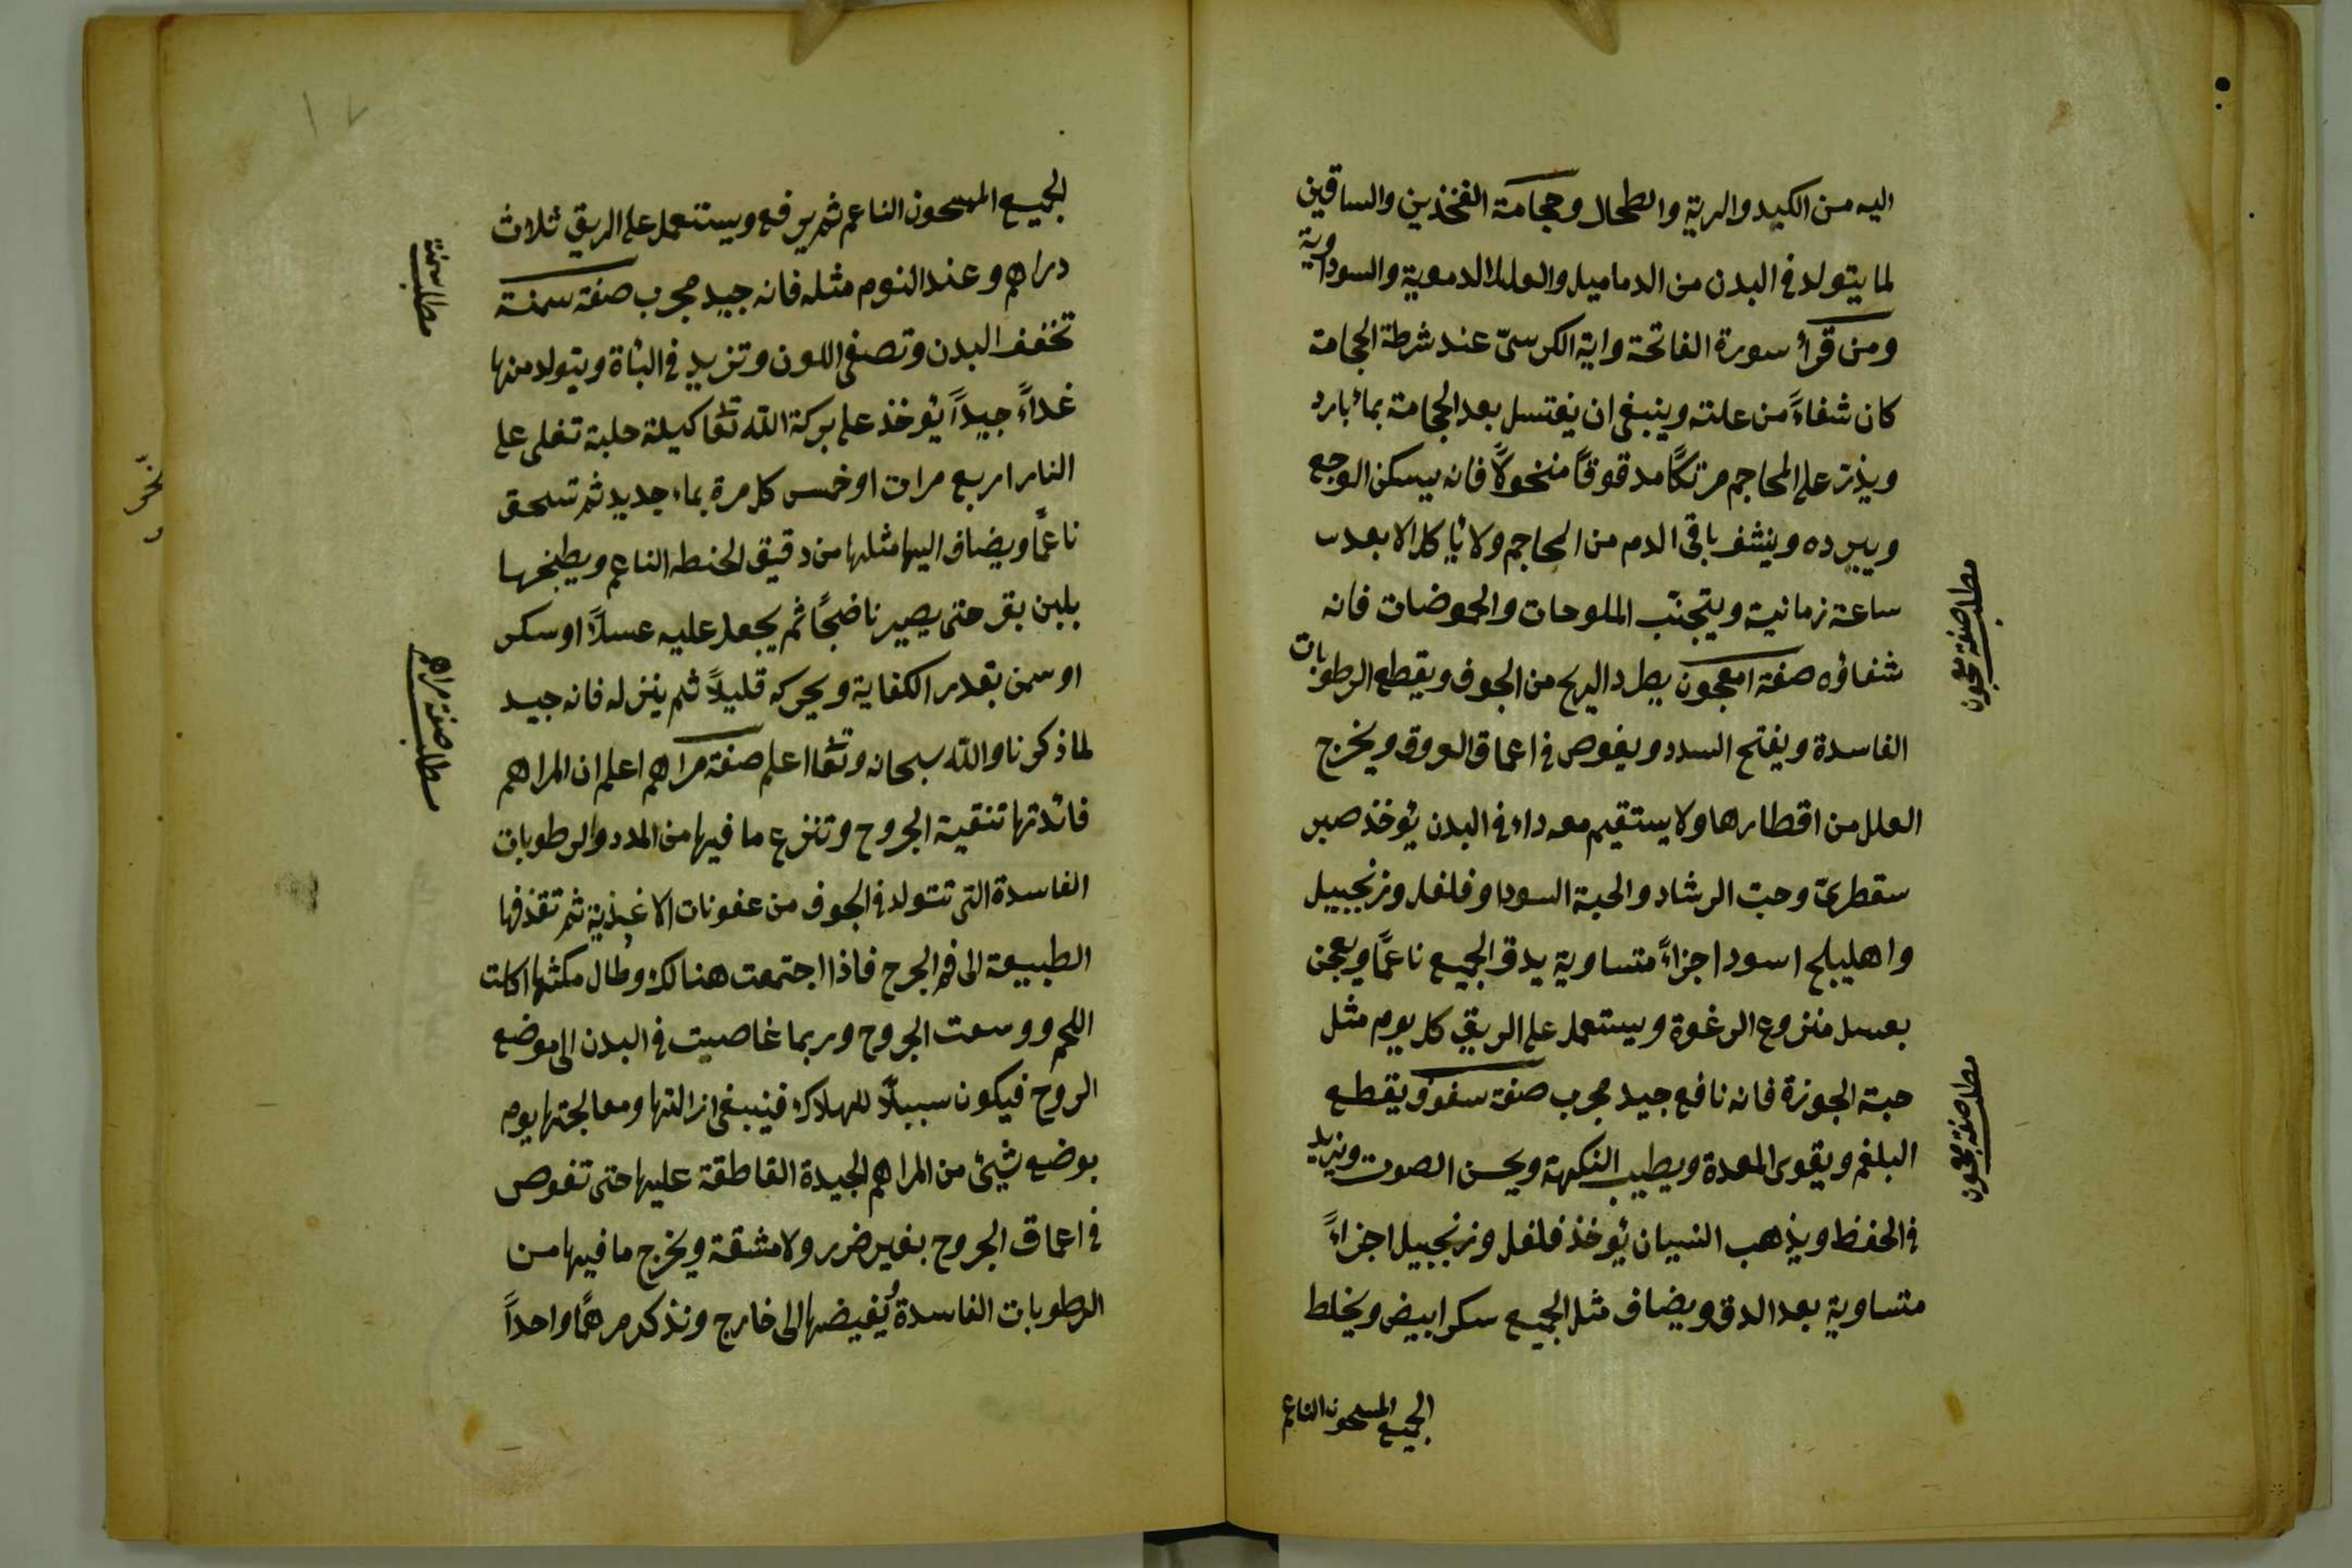 اليه من الكبد والرية والطحال وحجامة الفخذين والساقين
لما يتولد في البدن من الدماميل والعلل الدموية والسوداوية
ومن قرأ سورة الفاتحة واية الكرسىّ عند شرطة الحجامة
كان شفاءً من علته وينبغى ان يغتسل بعد الحجامة بماء بارد
ويذر على المحاجم مرتكًا مدقوقًا منخولًا فانه يسكن الوجع
ويبرده وينشف باقى الدم من المحاجم ولا ياكل الا بعد
ساعة زمانية ويتجنّب الملوحات والحموضات فانه
شفاؤه صفة امعجون يطرد الريح من الجوف ويقطع الرطوبات
الفاسدة ويفتح السدد ويغوص في اعماق العروق ويخرج
العلل من اقطارها ولا يستقيم معه داء في البدن يؤخذ صبر
سقطرىّ وحبّ الرشاد والحبة السودا وفلفل وزنجبيل
واهليلج اسود اجزاءً متساوية يدق الجميع ناعمًا ويعجن
بعسل منزوع الرغوة ويستعمل على الريق كل يوم مثل
حبة الجوزة فانه نافع جيد مجرب صفة سفوف يقطع
البلغم ويقوى المعدة ويطيب النكهة ويحسن الصوت ويزيد
في الحفظ ويذهب النسيان يؤخذ فلفل وزنجبيل اجزاءً
متساوية بعد الدق ويضاف مثل الجميع سكر ابيض ويخلط
الجميع المسحون الناعم
مطلب صفة معجون
مطلب صفة معجون
الجميع المسحون الناعم ثم يرفع ويستعمل على الريق ثلاث
دراهم وعند النوم مثله فانه جيد مجرب صفة سمنة
تخفف البدن وتصفى اللون وتزيد في الباة ويتولد منها
غداءً جيدًا يؤخذ على بركة الله تعا كيلة حلبة تغلى على
النار اربع مرات او خمس كل مرة بماء جديد ثم تسحق
ناعمًا ويضاف اليها مثلها من دقيق الحنطه الناعم ويطبخها
بلبن بقر حتى يصير ناضجًا ثم يجعل عليه عسلًا او سكر
او سمن بقدر الكفاية ويحركه قليلًا ثم ينزله فانه جيد
لما ذكرنا والله سبحانه وتعا اعلم صفة مراهم اعلم ان المراهم
فائدتها تنقية الجروح وتنزع ما فيها من المدد والرطوبات
الفاسدة التى تتولد في الجوف من عفونات الاغذية ثم تقذفها
الطبيعة الى فم الجرح فاذا اجتمعت هنالك وطال مكثها اكلت
اللحم ووسعت الجروح وربما غاصيت في البدن الى موضع
الروح فيكون سببلًا للهلاك فينبغى ازالتها ومعالجتها يوم
بوضع شيئ من المراهم الجيدة القاطقة عليها حتى تغوص
في اعماق الجروح بغير ضرر ولا مشقة ويخرج ما فيها من
الرطوبات الفاسدة يُفيضها الى خارج ونذكر مرهمًا واحدًا
مطلب سمنة
مطلب صفة مراهم
١٧